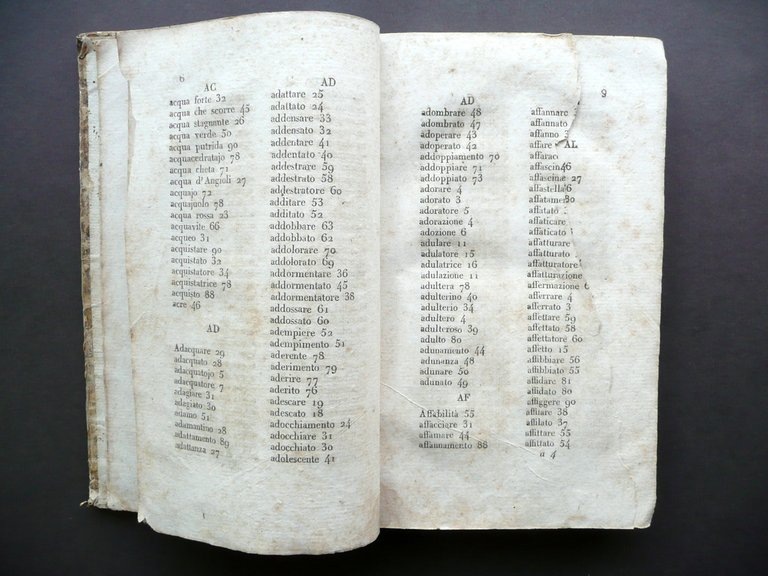 6
AC
acqua forte 32
acqua che scorre 45
acqua stagnante 26
acqua verde 50
acqua putrida 90
acquacedratajo 78
acqua cheta 71
acqua d'Angioli 27
acquajo 72
acquajuolo 78
acqua rossa 23
acquavite 66
acqueo 31
acquistare 90
acquistato 32
acquistatore 34
acquistatrice 78
acquisto 88
acre 46
AD
Adacquare 29
adacquato 28
adacquatojo 5
adacquatore 7
adagiare 31
adagiato 30
adamo 51
adamantino 28
adattamento 89
adattanza 27
AD
adattare 25
adattato 24
addensare 33
addensato 32
addentare 41
addentato 40
addestrare 59
addestrato 58
addestratore 60
additare 53
additato 52
addobbare 63
addobbato 62
addolorare 70
addolorato 69
addormentare 36
addormentato 45
addormentatore 38
addossare 61
addossato 60
adempiere 52
adempimento 51
aderente 78
aderimento 79
aderire 77
aderito 76
adescare 19
adescato 18
adocchiamento 24
adocchiare 31
adocchiato 30
adolescente 41
9
AD
adombrare 48
adombrato 47
adoperare 43
adoperato 42
addoppiamento 70
addoppiare 71
addoppiato 73
adorare 4
adorato 3
adoratore 5
adorazione 4
adozione 6
adulare 11
adulatore 15
adulatrice 16
adulazione 11
adultera 78
adulterino 40
adulterio 34
adultero 4
adulteroso 39
adulto 80
adunamento 44
adunanza 48
adunare 50
adunato 49
AF
Affabilità 55
affacciare 31
affamare 44
affannamento 88
affannare
affannato
affanno 3
affare
AL
affarac
affascin 46
affascinæ 27
affastella 6
affatamen 30
affatato
affaticare
affaticato
affatturare
affatturato
affatturatore
affatturazione
affermazione 6
afferrare 4
afferrato 3
affettare 59
affettato 58
affettatore 60
affetto 15
affibbiare 56
affibbiato 55
affidare 81
affidato 80
affiggere 90
affilare 38
affilato 37
affittare 55
affittato 54
a 4